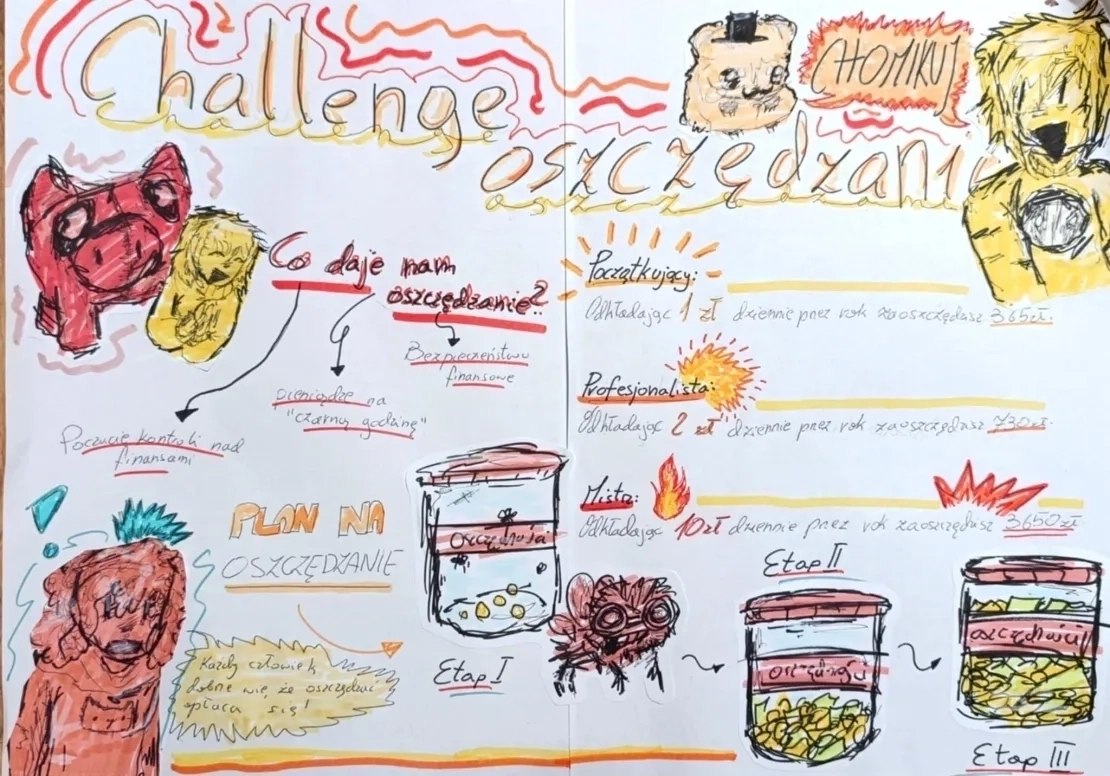 Challenge
oszczędzania
CHOMIKUJ
Co daje nam
oszczędzanie?
Bezpieczeństwo
finansowe
pieniądze na
"czarną godzinę"
Poczucie kontroli nad
finansami
Początkujący:
Odkładając 1 zł dziennie przez rok zaoszczędzasz 365zł.
Profesjonalista:
Odkładając 2 zł dziennie przez rok zaoszczędzasz 730zł.
Mistrz:
Odkładając 10zł dziennie przez rok zaoszczędzasz 3650zł.
PLAN NA
OSZCZĘDZANIE
Każdy człowiek
dobrze wie że oszczędzać
opłaca się!
Oszczędności
Etap I
Etap II
oszczędności
oszczędności!
Etap III